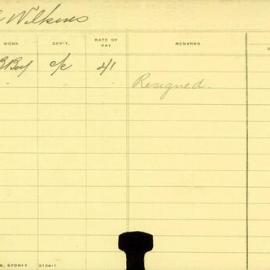 Wilkins
WORK DEP'T. RATE OF PAY REMARKS
Boy c/c 2/1
Resigned.
SYDNEY